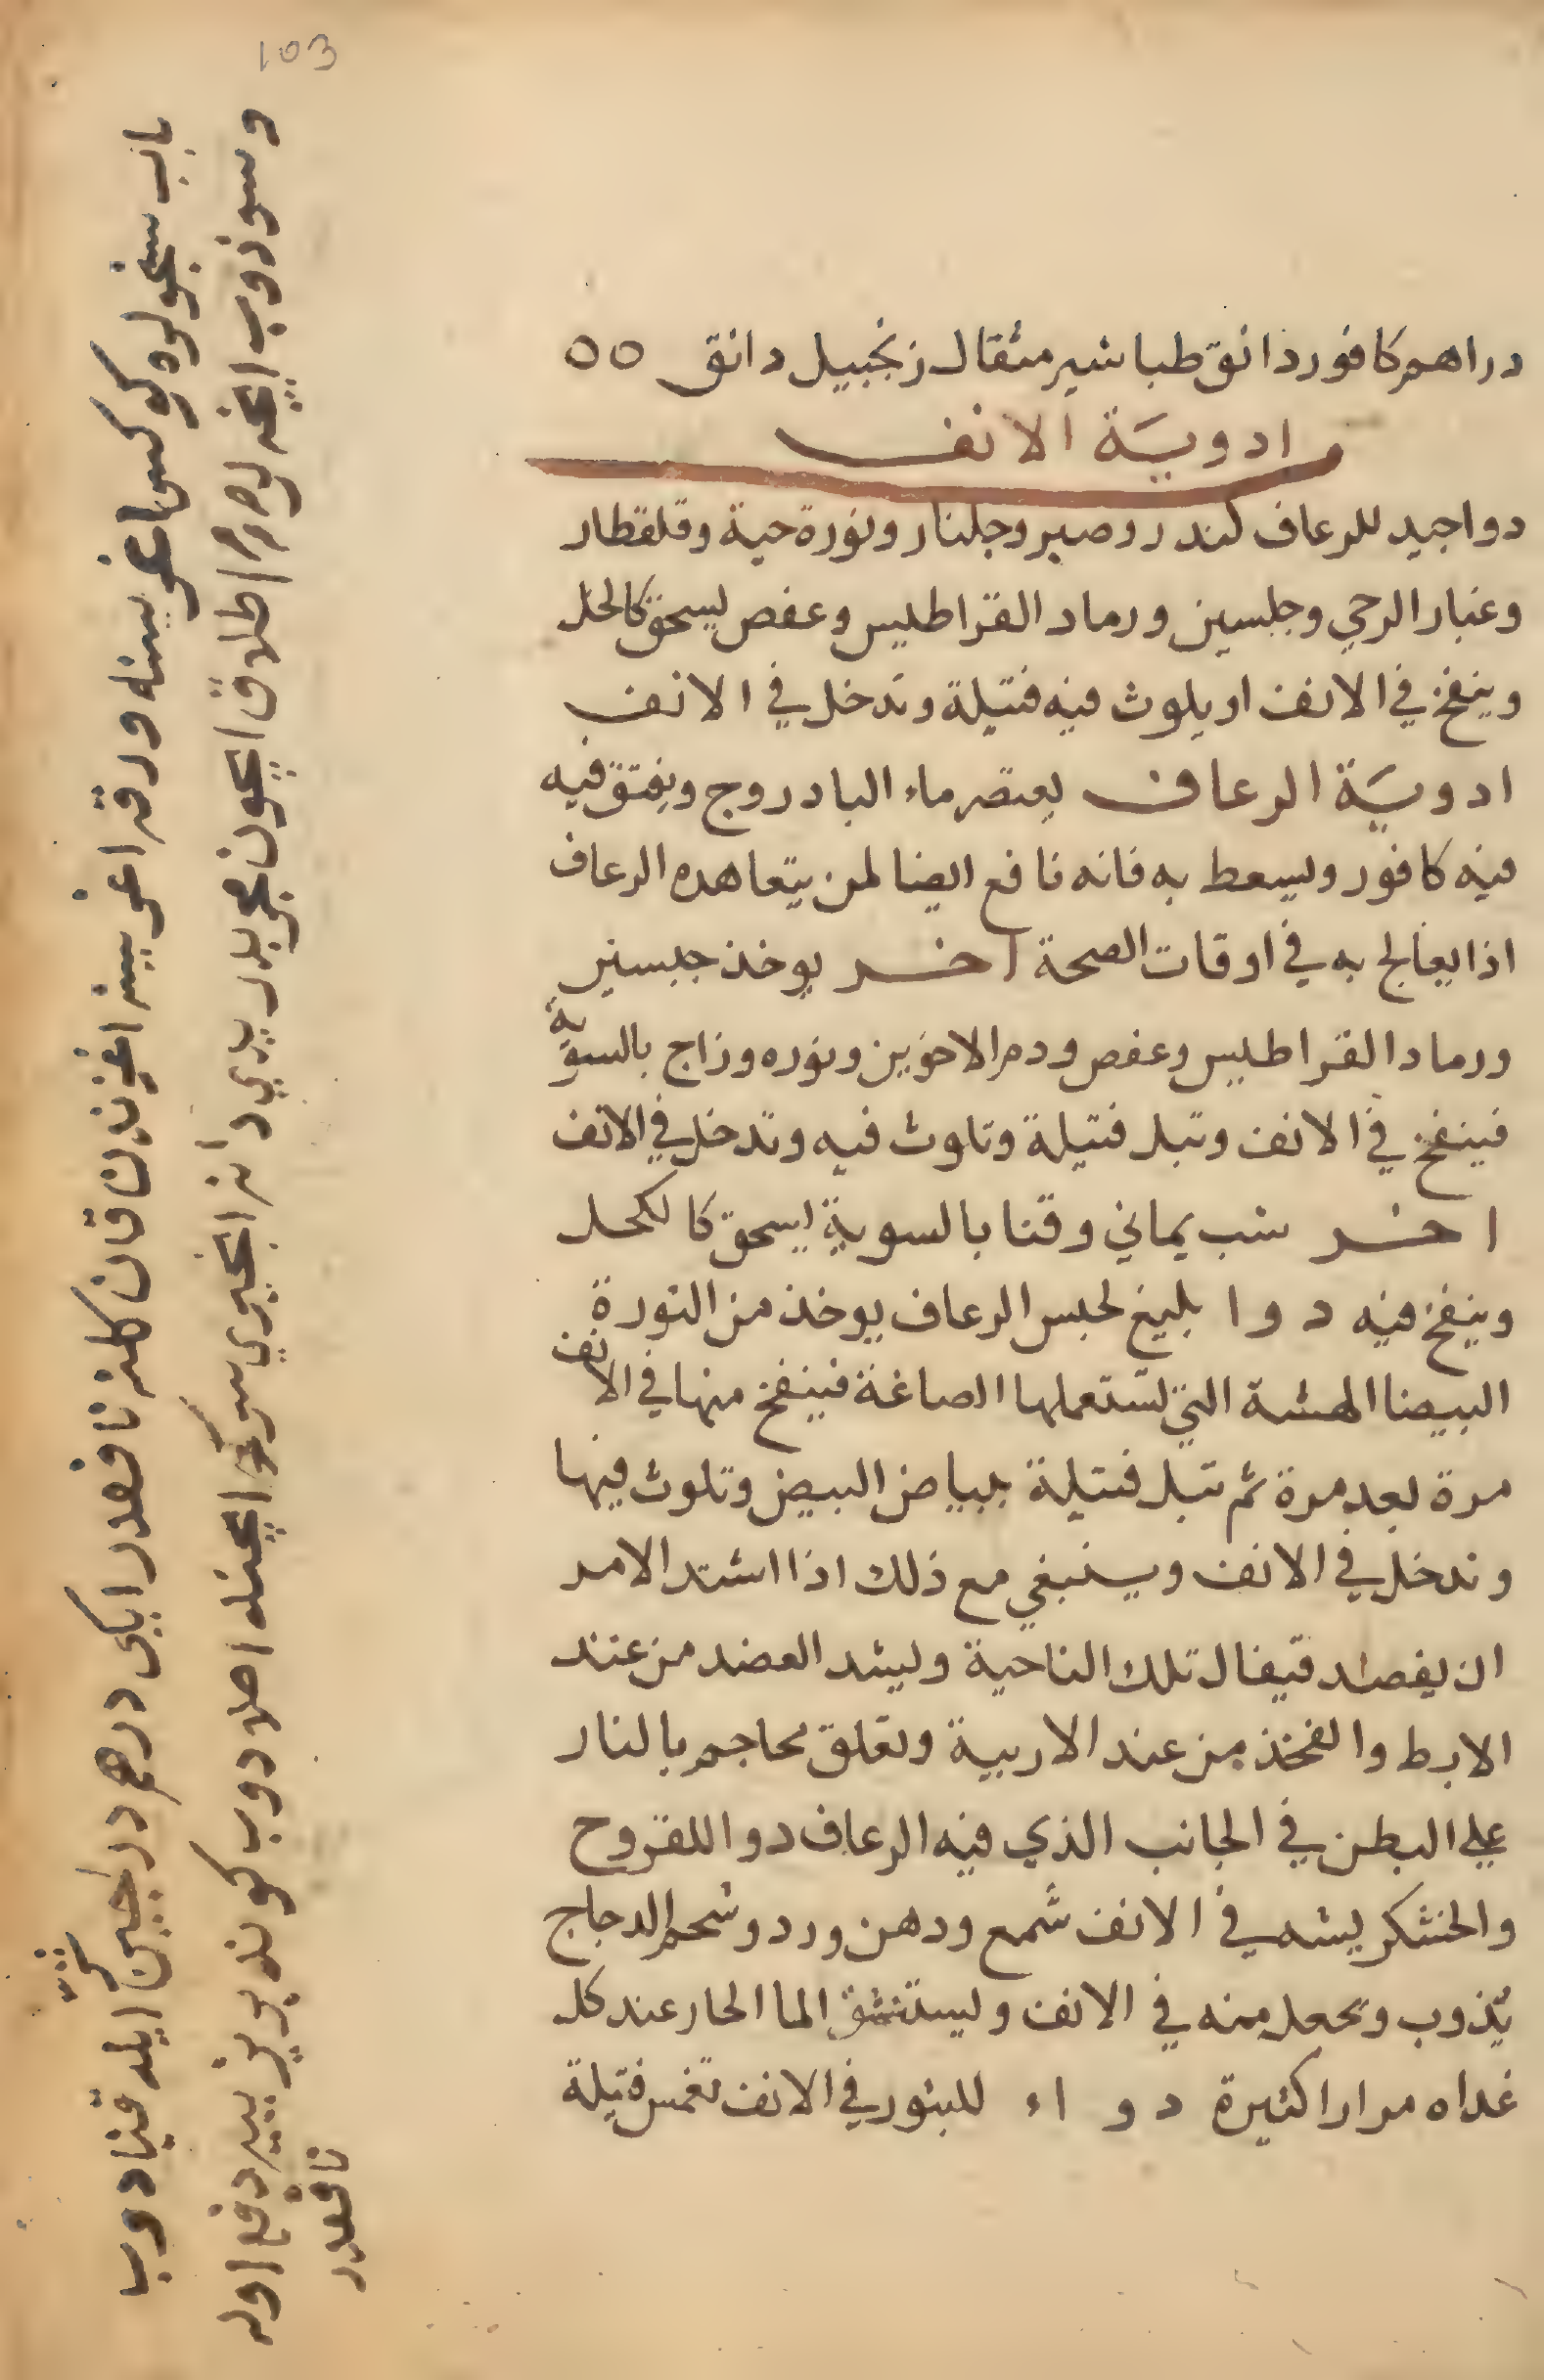 103
دراهم كافور دانق طباشير مثقال زنجبيل دانق ٥٥
ادوية الانف
دوا جيد للرعاف كندر وصبر وجلنار ونورة حية وقلقطار
وغبار الرحي وجبسين ورماد القراطيس وعفص يسحق كالكحل
وينفخ في الانف او يلوث فيه فتيلة وتدخل في الانف
ادوية الرعاف يعتصر ماء البادروج ويفتق فيه
فيه كافور ويسعط به فانه نافع ايضا لمن يتعاهده الرعاف
اذا يعالج به في اوقات الصحة اخر يوخذ جبسين
ورماد القراطيس وعفص ودم الاخوين ونوره وزاج بالسوية
فينفخ في الانف وتبل فتيلة وتلوث فيه وتدخل في الانف
اخر شب يماني وقنا بالسوية يسحق كالكحل
وينفخ فيه دوا بليغ لحبس الرعاف يوخذ من النورة
البيضا الهشة التي تستعملها الصاغة فينفخ منها في الانف
مرة بعد مرة ثم تبل فتيلة ببياض البيض وتلوث فيها
وتدخل في الانف وينبغي مع ذلك اذا اشتد الامر
ان يفصد قيفال تلك الناحية ويشد العضد من عند
الابط والفخذ من عند الاربية وتعلق محاجم بالنار
علي البطن في الجانب الذي فيه الرعاف دوا للقروح
والخشكريشه في الانف شمع ودهن ورد وشحم الدجاج
يذوب ويجعل منه في الانف ويستنشق الما الحار عند كل
غداه مرارا كثيرة دواء للبثور في الانف تغمس فتيلة
باب سنجولوه كوكسا اغريسنه ورقه اغريسنه اغزندن قان كلنه نافعدر ايكى درهم ايله قينادوب
وسوزوب ايچه لر اطلاق ايچون مجربدر
نافعدر